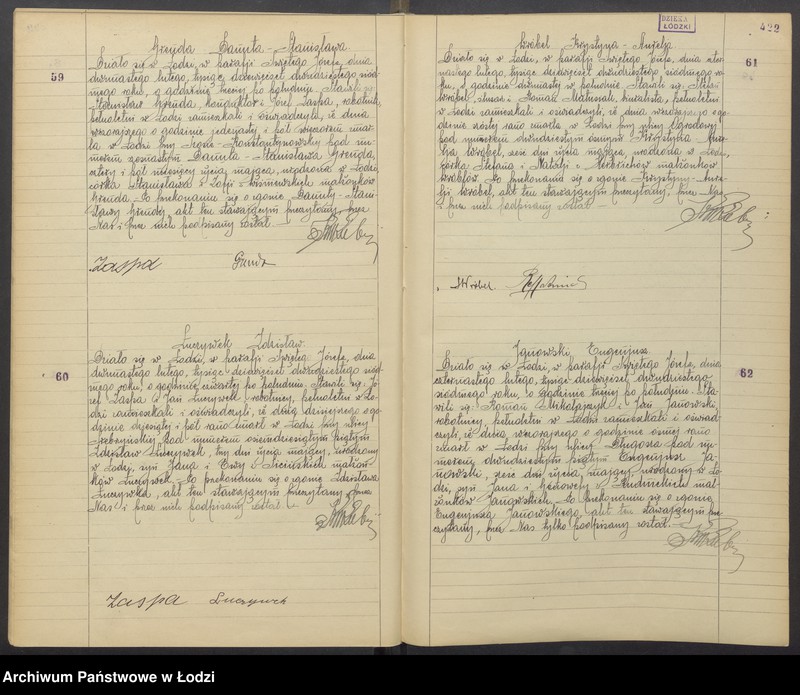 Grenda Danuta-Stanisława.
59
Działo się w Łodzi, w parafji Świętego Józefa, dnia
dwunastego lutego, tysiąc dziewięćset dwudziestego siód-
mego roku, o godzinie trzeciej po południu. Stawili się:
Stanisław Grenda, konduktor i Józef Zaspa, robotnik,
pełnoletni w Łodzi zamieszkali i oświadczyli, że dnia
wczorajszego o godzinie jedenastej i pół wieczorem umar-
ła w Łodzi przy Szosie-Konstantynowskiej pod nu-
merem Danuta-Stanisława Grenda,
cztery i pół miesięcy życia mająca, urodzona w Łodzi,
córka Stanisława i Zofji małżonków
Grenda. Po przekonaniu się o zgonie Danuty-Stani-
sławy Grendy, akt ten stawającym przeczytany, przez
Nas i przez nich podpisany został.
Zaspa Grenda
Luczywek Zdzisław.
60
Działo się w Łodzi, w parafji Świętego Józefa, dnia
dwunastego lutego, tysiąc dziewięćset dwudziestego siód-
mego roku, o godzinie czwartej po południu. Stawili się: Jó-
zef Zaspa i Jan Luczywek, robotnicy, pełnoletni w Ło-
dzi zamieszkali i oświadczyli, że dnia dzisiejszego o go-
dzinie dziesiątej i pół rano umarł w Łodzi przy ulicy
Srebrzyńskiej pod numerem osiemdziesiątym piątym
Zdzisław Luczywek, trzy dni życia mający, urodzony
w Łodzi, syn Jana i Ewy z małżon-
ków Luczywek. Po przekonaniu się o zgonie Zdzisława
Luczywka, akt ten stawającym przeczytany, przez
Nas i przez nich podpisany został.
Zaspa Luczywek
DZIELNICA ŁÓDZKI
422
Wróbel Krystyna-Aurelja
61
Działo się w Łodzi, w parafji Świętego Józefa, dnia czter-
nastego lutego, tysiąc dziewięćset dwudziestego siódmego ro-
ku, o godzinie dwunastej w południe. Stawili się: Stefan
Wróbel, ślusarz i Roman Matusiak, pełnoletni
w Łodzi zamieszkali i oświadczyli, że dnia wczorajszego o go-
dzinie szóstej rano umarła w Łodzi przy ulicy Ogrodowej
pod numerem dwudziestym ósmym Krystyna-Aure-
lja Wróbel, sześć dni życia mająca, urodzona w Łodzi,
córka Stefana i Natalji z małżonków
Wróblów. Po przekonaniu się o zgonie Krystyny-Aure-
lji Wróbel, akt ten stawającym przeczytany, przez Nas
i przez nich podpisany został.
St Wróbel
Janowski Eugenjusz
62
Działo się w Łodzi, w parafji Świętego Józefa, dnia
czternastego lutego, tysiąc dziewięćset dwudziestego
siódmego roku, o godzinie trzeciej po południu. Sta-
wili się: Roman Mikołajczyk i Jan Janowski,
robotnicy, pełnoletni w Łodzi zamieszkali i oświad-
czyli, że dnia wczorajszego o godzinie ósmej rano
umarł w Łodzi przy ulicy Długosza pod nu-
merem dwudziestym piątym Eugenjusz Ja-
nowski, sześć dni życia mający, urodzony w Ło-
dzi, syn Jana i z małżonków
Janowskich. Po przekonaniu się o zgonie
Eugenjusza Janowskiego, akt ten stawającym prze-
czytany, przez Nas tylko podpisany został.
Archiwum Państwowe w Łodzi